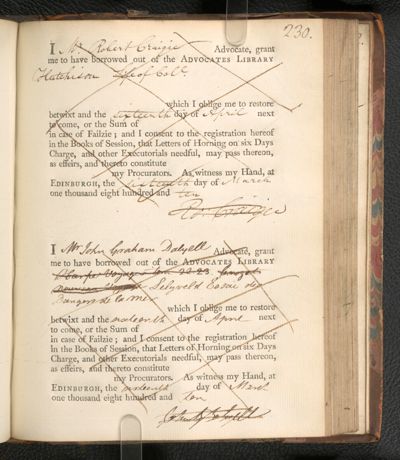 230.
I Mr Robert Craigie Advocate, grant
me to have borrowed out of the ADVOCATES LIBRARY
Hutchison Life of Coll.
which I oblige me to restore
betwixt and the sixteenth day of April next
to come, or the Sum of
in case of Failzie; and I consent to the registration hereof
in the Books of Session, that Letters of Horning on six Days
Charge, and other Executorials needful, may pass thereon,
as effeirs, and thereto constitute
my Procurators. As witness my Hand, at
EDINBURGH, the sixteenth day of March
one thousand eight hundred and ten
Ro: Craigie
I Mr John Graham Dalyell Advocate, grant
me to have borrowed out of the ADVOCATES LIBRARY
Voyages 22 23
Essai
Dangers de la mer
which I oblige me to restore
betwixt and the sixteenth day of April next
to come, or the Sum of
in case of Failzie; and I consent to the registration hereof
in the Books of Session, that Letters of Horning on six Days
Charge, and other Executorials needful, may pass thereon,
as effeirs, and thereto constitute
my Procurators. As witness my Hand, at
EDINBURGH, the sixteenth day of March
one thousand eight hundred and ten
John G Dalyell